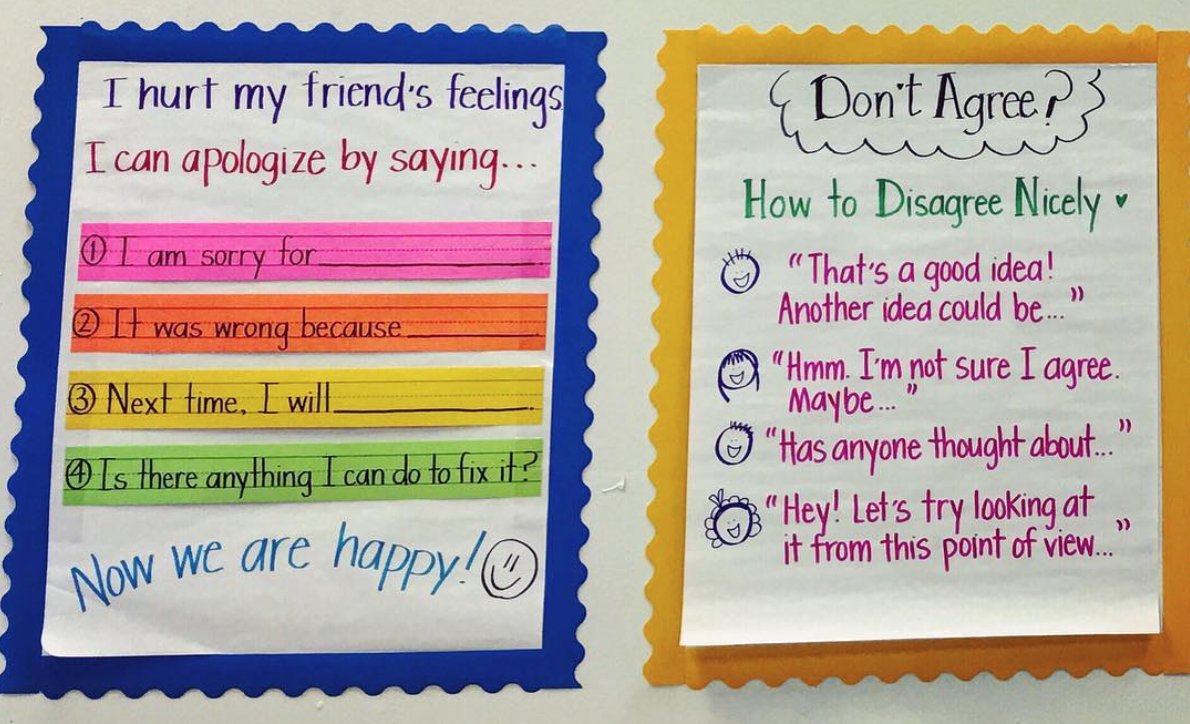 I hurt my friend's feelings
I can apologize by saying...
① I am sorry for____________.
② It was wrong because________.
③ Next time, I will____________.
④ Is there anything I can do to fix it?
Now we are happy!
Don't Agree?
How to Disagree Nicely ♥
"That's a good idea!
Another idea could be..."
"Hmm. I'm not sure I agree.
Maybe..."
"Has anyone thought about..."
"Hey! Let's try looking at
it from this point of view..."